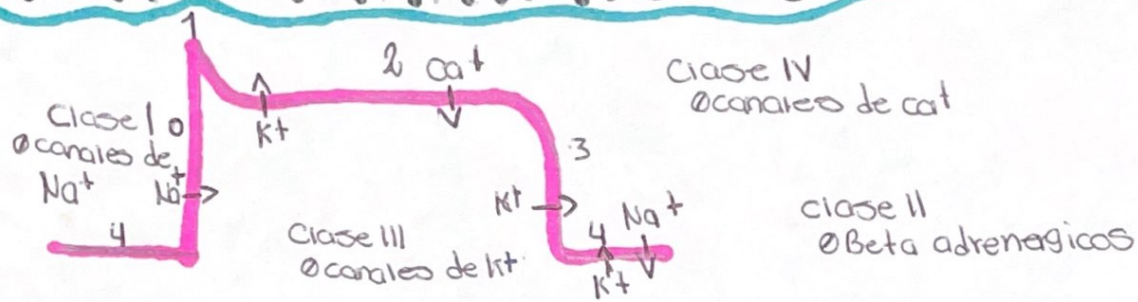 1
2 Ca+
Clase IV
Ø canales de cat
Clase I 0
Ø canales de
Na+
Na+
K+
3
K+
4
Clase III
Ø canales de K+
4 Na+
K+
Clase II
Ø Beta adrenergicos